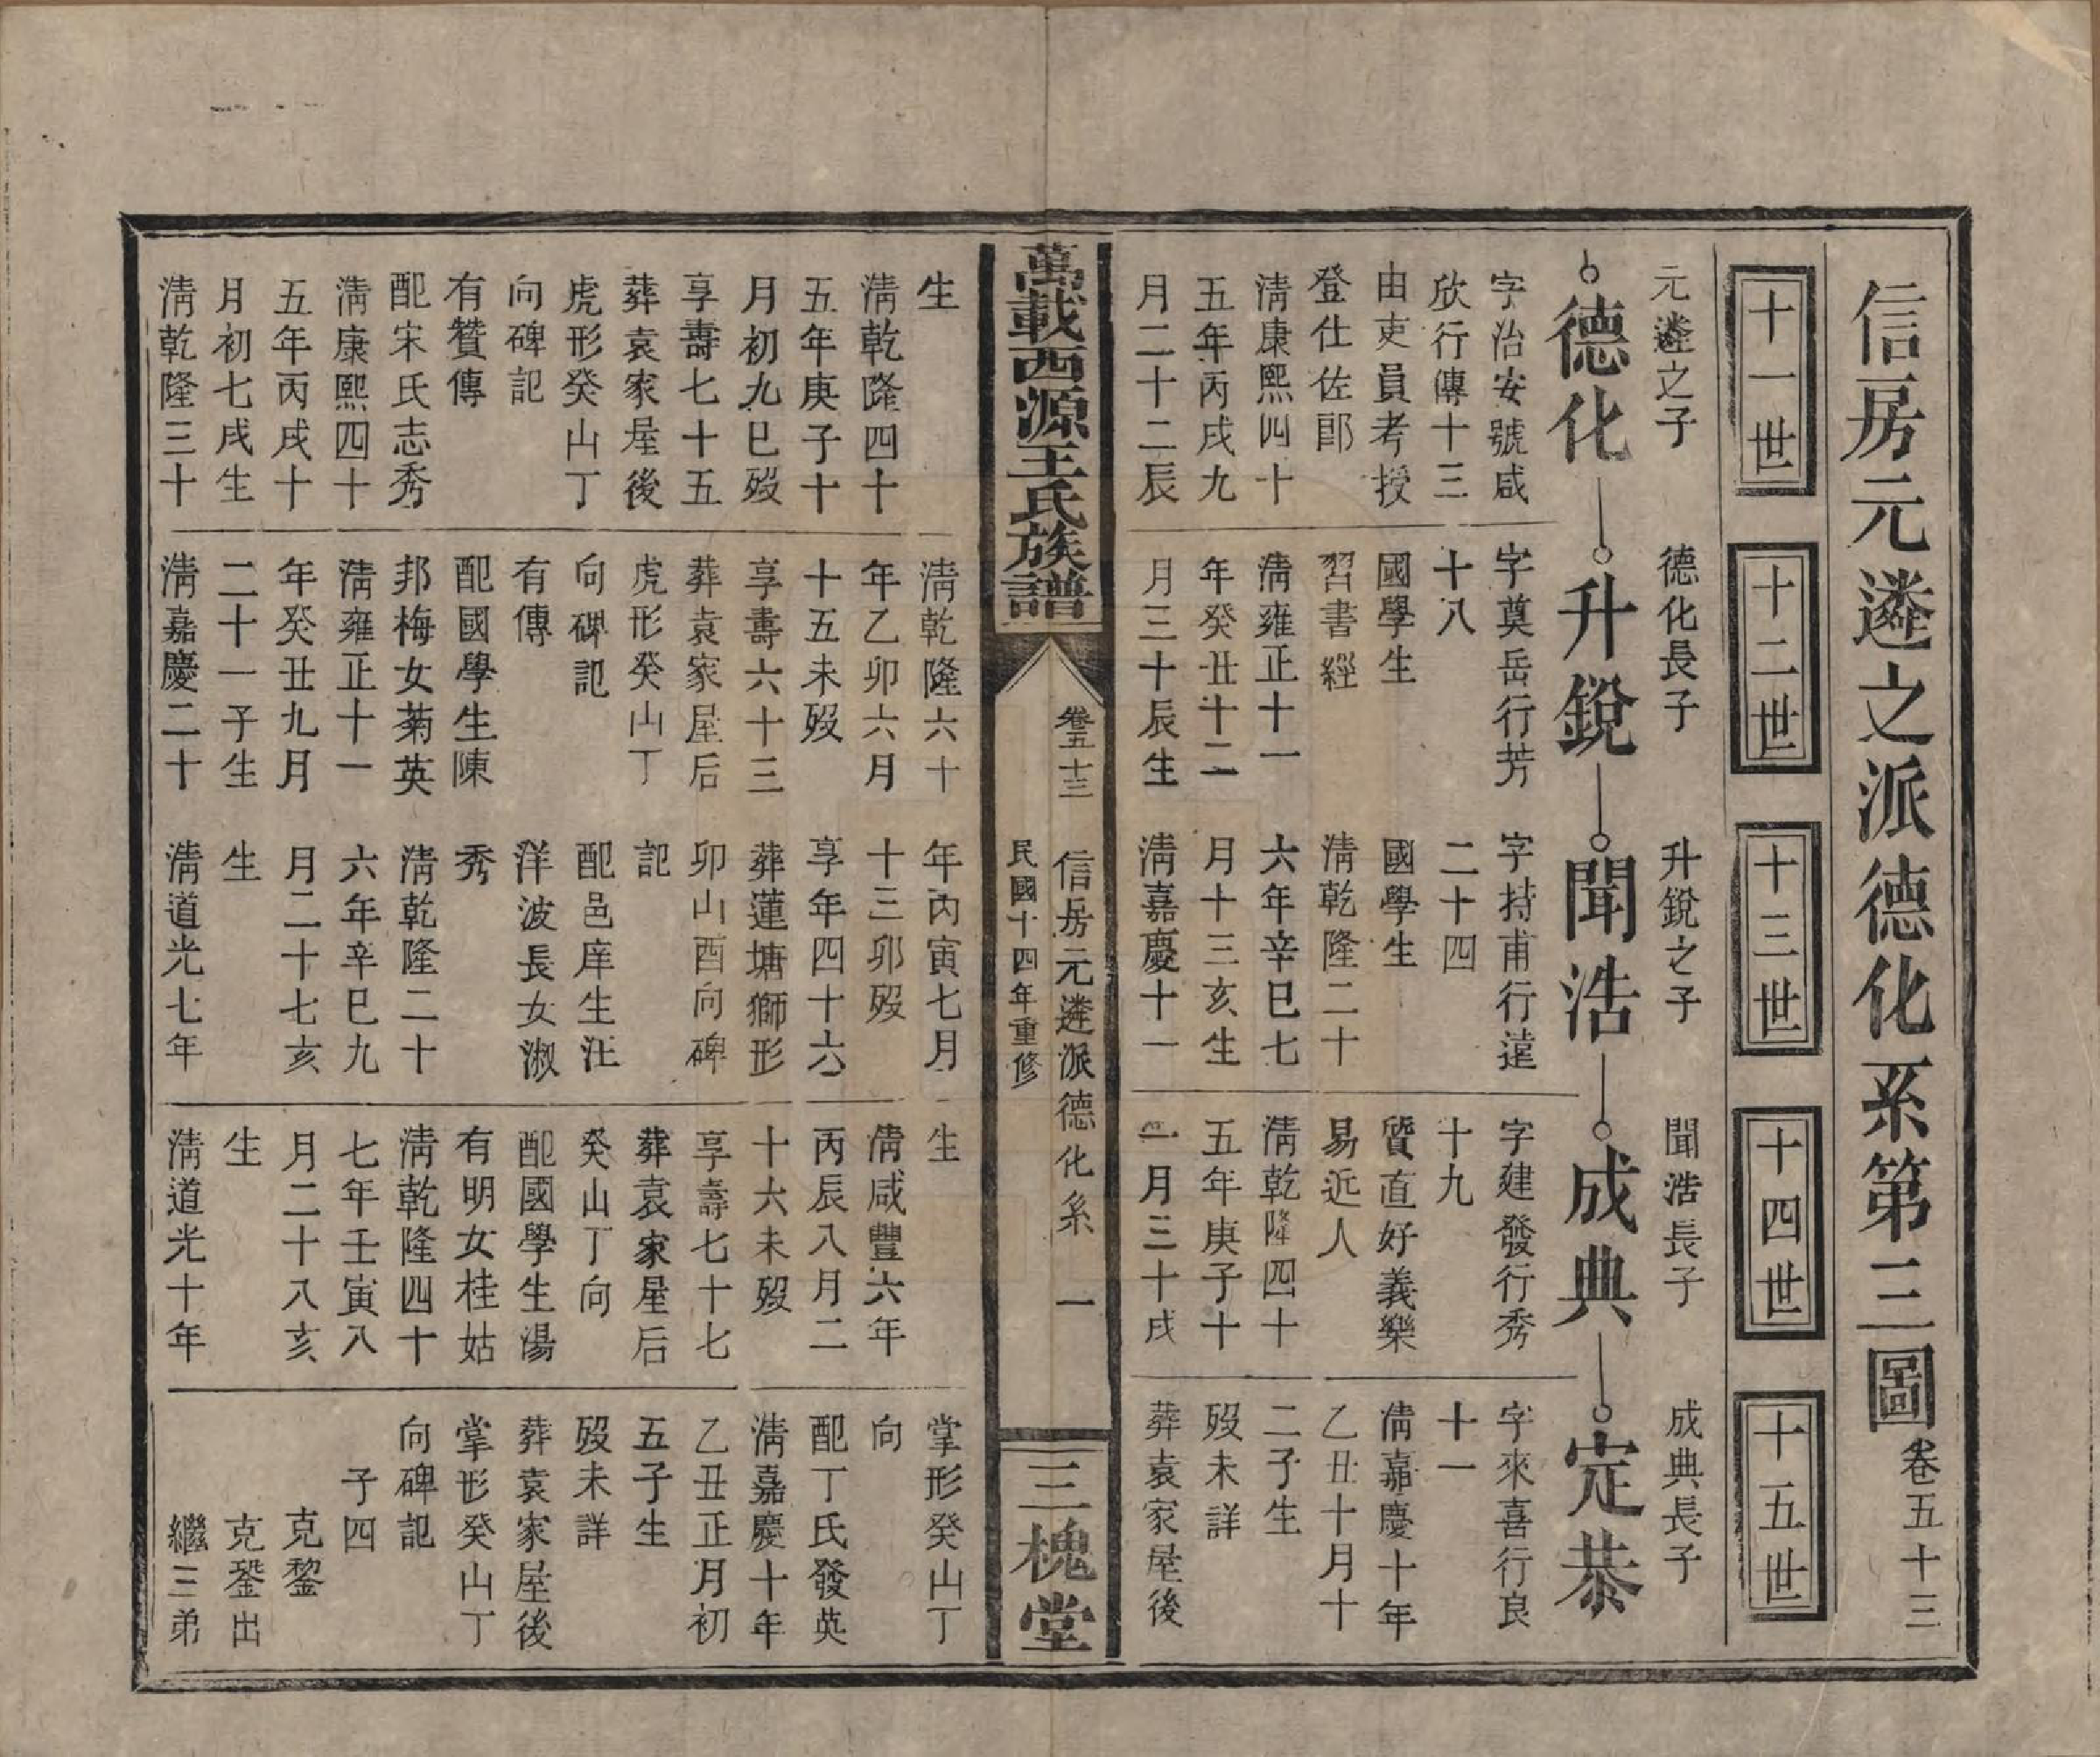 信房元遴之派德化系第三圖 卷五十三
十一世
十二世
十三世
十四世
十五世
元遴之子
德化
字治安號咸
欣行傳十三
由吏員考授
登仕佐郎
淸康熙四十
五年丙戌九
月二十二辰
生
淸乾隆四十
五年庚子十
月初九巳歿
享壽七十五
葬袁家屋後
虎形癸山丁
向碑記
有贊傳
配宋氏志秀
淸康熙四十
五年丙戌十
月初七戌生
淸乾隆三十
德化長子
升銳
字奠岳行芳
十八
國學生
習書經
淸雍正十一
年癸丑十二
月三十辰生
淸乾隆六十
年乙卯六月
十五未歿
享壽六十三
葬袁家屋后
虎形癸山丁
向碑記
有傳
配國學生陳
邦梅女菊英
淸雍正十一
年癸丑九月
二十一子生
淸嘉慶二十
升銳之子
聞浩
字持甫行遠
二十四
國學生
淸乾隆二十
六年辛巳七
月十三亥生
淸嘉慶十一
年丙寅七月
十三卯歿
享年四十六
葬蓮塘獅形
卯山酉向碑
記
配邑庠生汪
洋波長女淑
秀
淸乾隆二十
六年辛巳九
月二十七亥
生
淸道光七年
聞浩長子
成典
字建發行秀
十九
質直好義樂
易近人
淸乾隆四十
五年庚子十
一月三十戌
生
淸咸豐六年
丙辰八月二
十六未歿
享壽七十七
葬袁家屋后
癸山丁向
配國學生湯
有明女桂姑
淸乾隆四十
七年壬寅八
月二十八亥
生
淸道光十年
成典長子
定恭
字來喜行良
十一
淸嘉慶十年
乙丑十月十
二子生
歿未詳
葬袁家屋後
掌形癸山丁
向
配丁氏發英
淸嘉慶十年
乙丑正月初
五子生
歿未詳
葬袁家屋後
掌形癸山丁
向碑記
子四
克鍪
克銎出
繼三弟
萬載西源王氏族譜
卷五十三
信房元遴派德化系 一
民國十四年重修
三槐堂